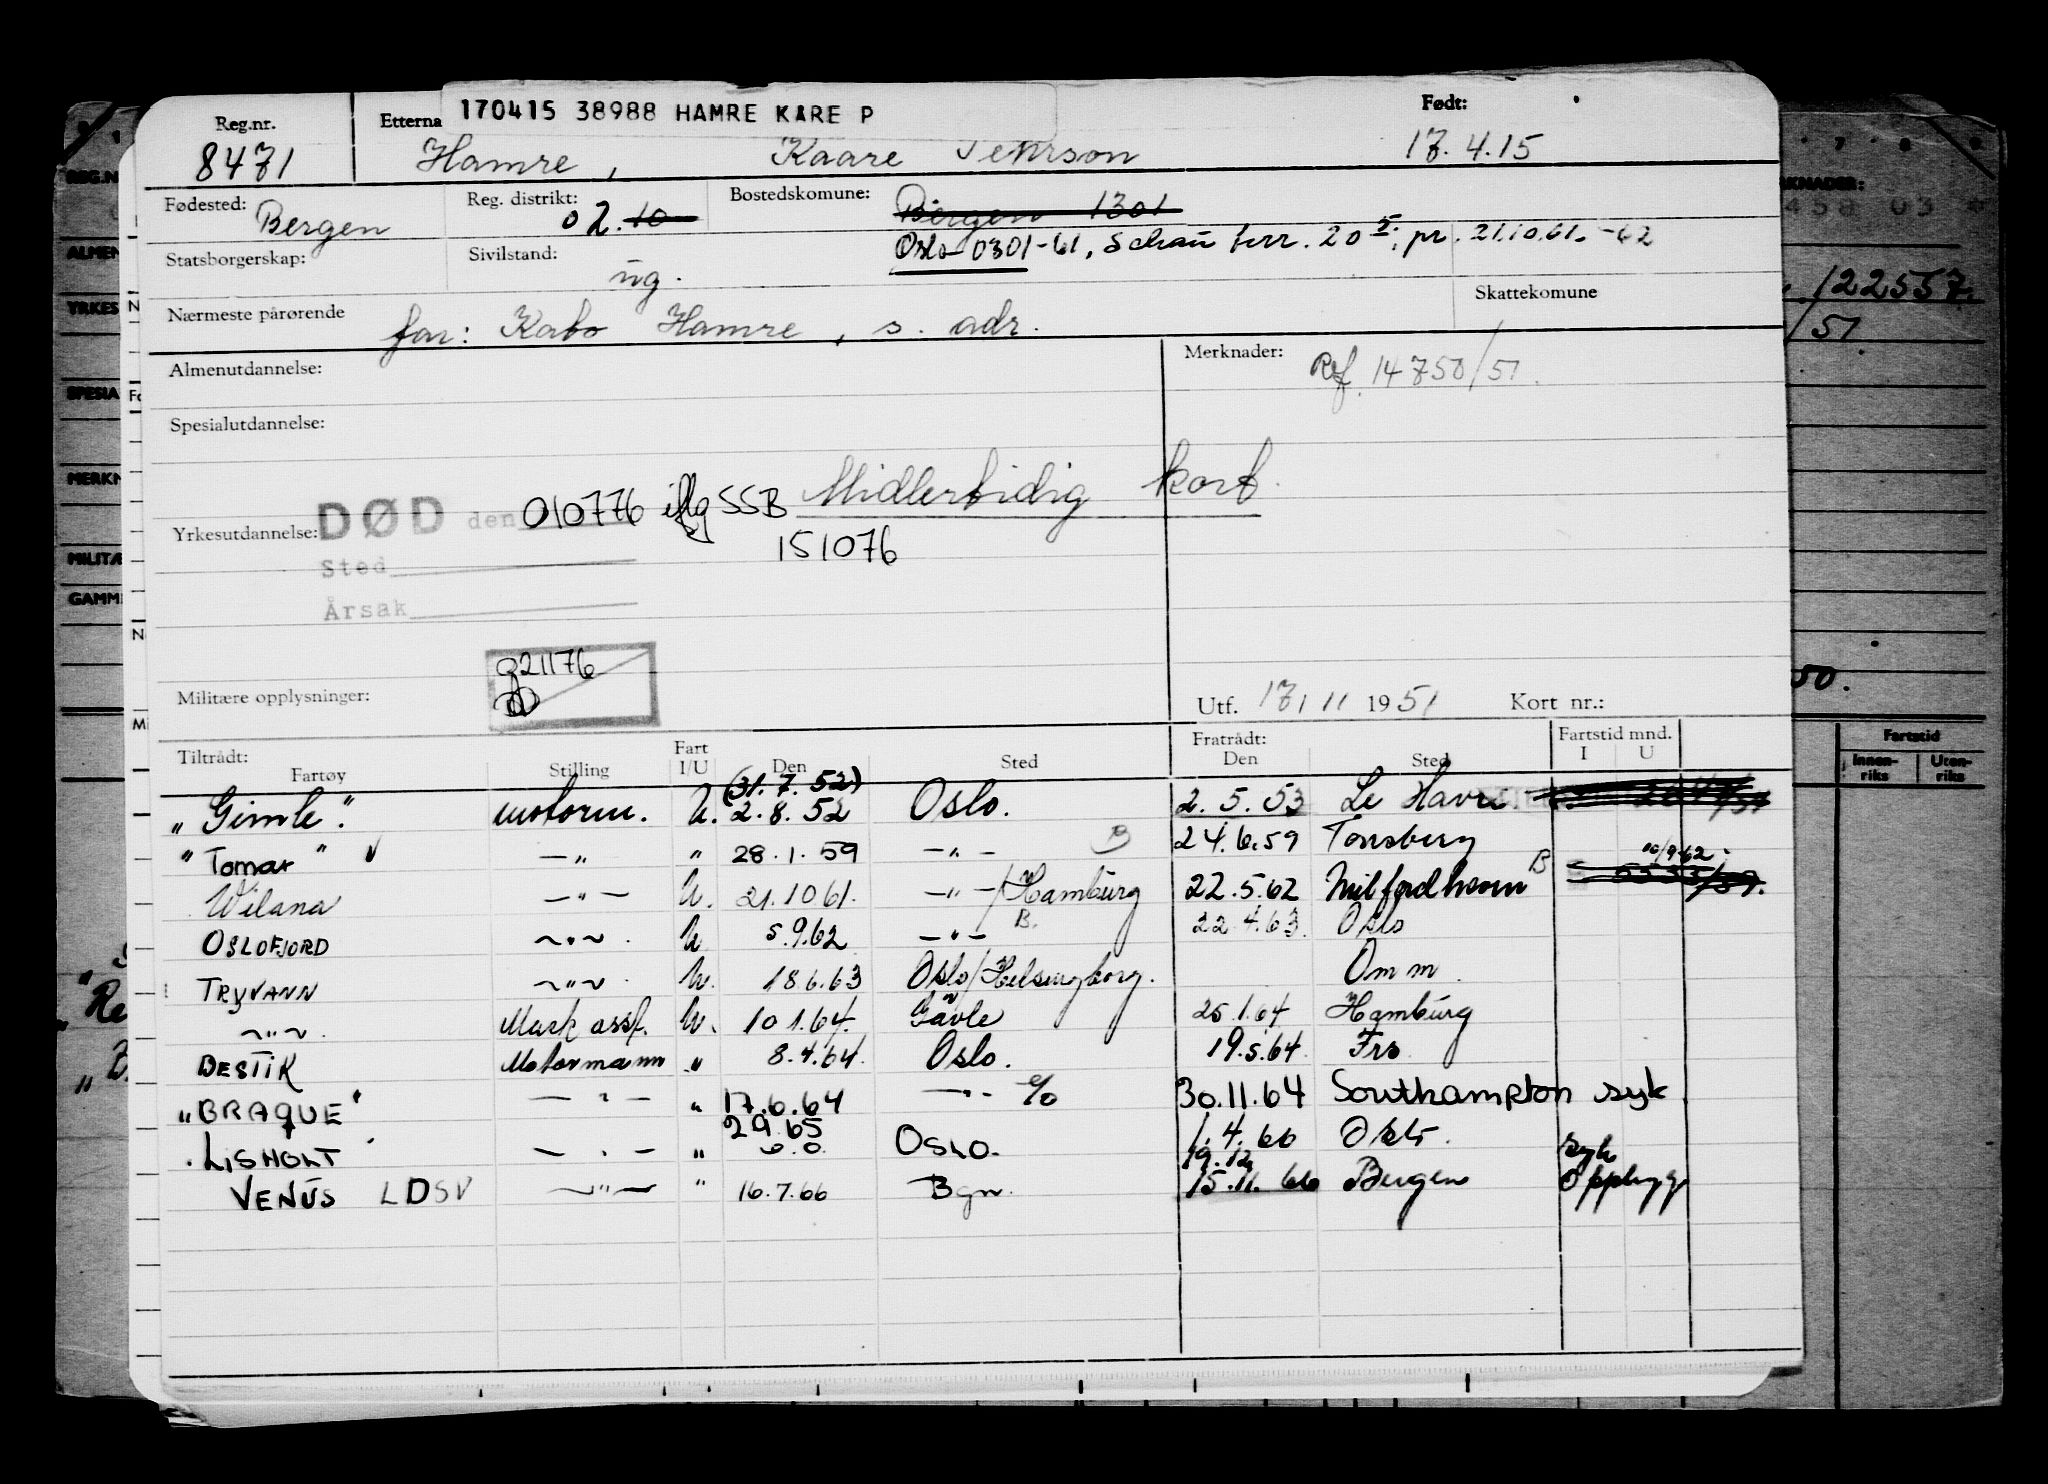 170415 38988 HAMRE KARE P
Reg.nr. Etterna Født:
8471 Hamre, Kaare Pehrson 17.4.15
Fødested: Bergen Reg. distrikt: 02. 10 Bostedskomune: Bergen 1301
Oslo 0301-61, Schau terr. 20 pr. 21.10.61. -62
Statsborgerskap: Sivilstand: ug.
Nærmeste pårørende far: Hamre, s. adr. Skattekomune
Almenutdannelse: Merknader: Ref. 14750/51.
Spesialutdannelse:
Midlertidig kort.
Yrkesutdannelse: DØD den 010776 iflg SSB
151076
Sted
Årsak
221176
Militære opplysninger: Utf. 17/11 1951 Kort nr.:
Tiltrådt: Fratrådt: Fartstid mnd.
Fartøy Stilling Fart I/U Den Sted Den Sted I U
(31.7.52)
"Gimle". motorm. U. 2.8.52 Oslo. 2.5.53 Le Havre
"Tomar" √ —"— " 28.1.59 —"— B 24.6.59 Tønsberg
Wilana —"— U. 21.10.61. —"—/Hamburg 22.5.62 Milfordhaven B
OSLOFJORD —"— . U 5.9.62 —"— B. 22.4.63. Oslo
TRYVANN —"— . U. 18.6.63 Oslo/Helsingborg. Omm.
—"— . Mask ass. U. 10.1.64. Gävle 25.1.64 Hamburg
BESTIK Motormann " 8.4.64. Oslo. 19.5.64. Frs.
"BRAQUE" —"— " 17.6.64 —"— 30.11.64 Southampton syk
LISHOLT —"— " 29.65 OSLO. 1.4.66
19.12 syk
VENUS LDSV —"— " 16.7.66 Bgn. 15.11.66 Bergen Oppbygg
REG.N
ALMEN
YRKES
SPESIA
MERKN
MILITÆ
GAMM
122557.
/51
50.
Fartstid
Innen-riks Uten-riks